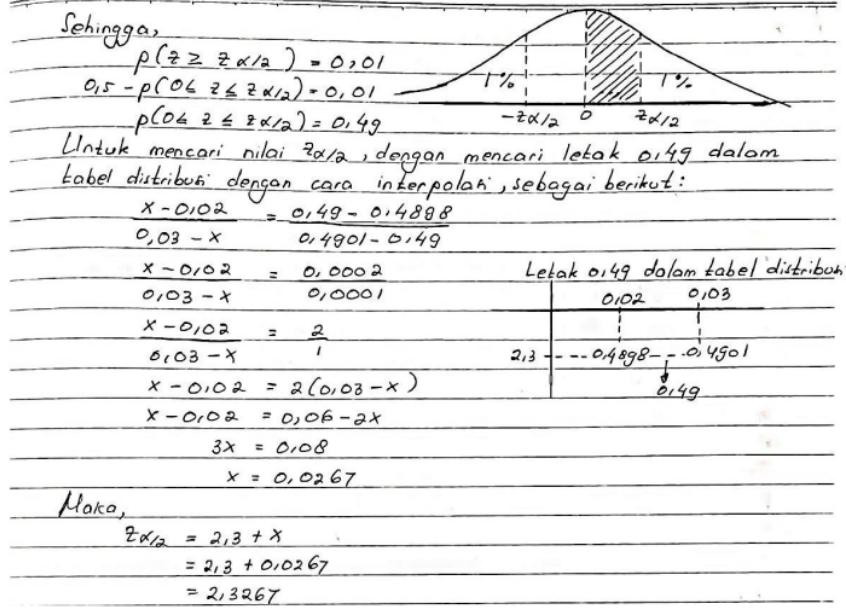 Sehingga,
p(z ≥ zα/2) = 0,01
0,5 - p(0 ≤ z ≤ zα/2) = 0,01
p(0 ≤ z ≤ zα/2) = 0,49
1% 1%
-zα/2 0 zα/2
Untuk mencari nilai zα/2, dengan mencari letak 0,49 dalam
tabel distribusi dengan cara interpolasi, sebagai berikut:
x - 0,02 = 0,49 - 0,4898
0,03 - x 0,4901 - 0,49
x - 0,02 = 0,0002
0,03 - x 0,0001
x - 0,02 = 2
0,03 - x 1
x - 0,02 = 2(0,03 - x)
x - 0,02 = 0,06 - 2x
3x = 0,08
x = 0,0267
Letak 0,49 dalam tabel distribusi
0,02 0,03
2,3 0,4898 0,4901
0,49
Maka,
zα/2 = 2,3 + x
= 2,3 + 0,0267
= 2,3267